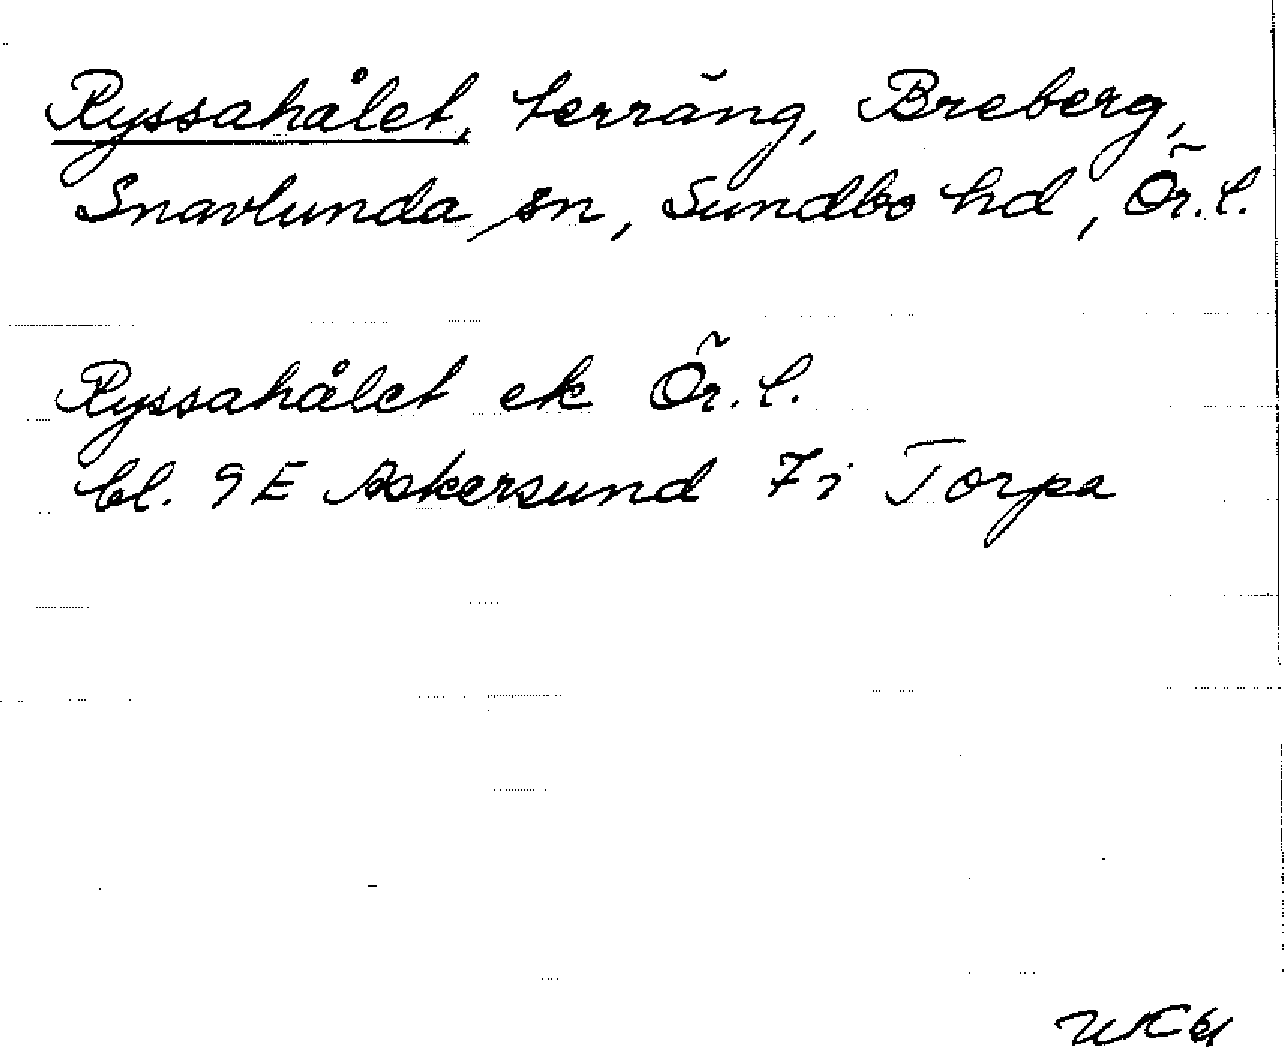 Ryssahålet, terräng, Breberg,
Snavlunda sn, Sundbo hd, Ör. l.
Ryssahålet ek Ör. l.
bl. 9 E Askersund 7 i Torpa